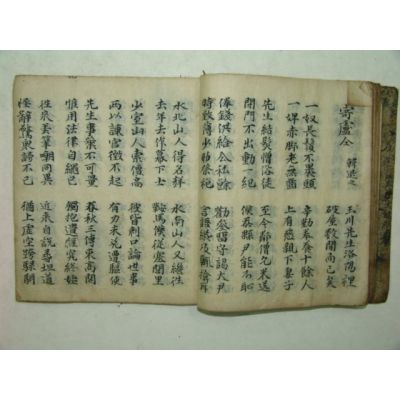 寄盧仝 韓退之
玉川先生洛陽裡
破屋數間而已矣
一奴長鬚不裹頭
一婢赤脚老無齒
辛勤奉養十餘人
上有慈親下妻子
先生結髮憎俗徒
閉門不出動一紀
至今鄰僧乞米送
僕忝縣尹能不恥
俸錢供給公私餘
時致薄少助祭祀
勸參留守謁大尹
言語纔及輒掩耳
水北山人得名聲
去年去作幕下士
水南山人又繼往
鞍馬僕從塞閭里
少室山人索價高
兩以諫官徵不起
彼皆刺口論世事
有力未免遭驅使
先生事業不可量
惟用法律自繩己
春秋三傳束高閣
獨抱遺經究終始
往年弄筆嘲同異
怪辭驚衆謗不已
近來自說尋坦道
猶上虛空跨騄駬